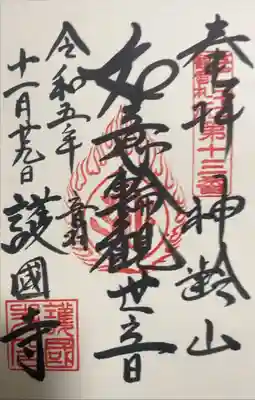 奉拝 神齢山
第十三番
如意輪観世音
令和五年 音羽
十一月廿九日 護國寺